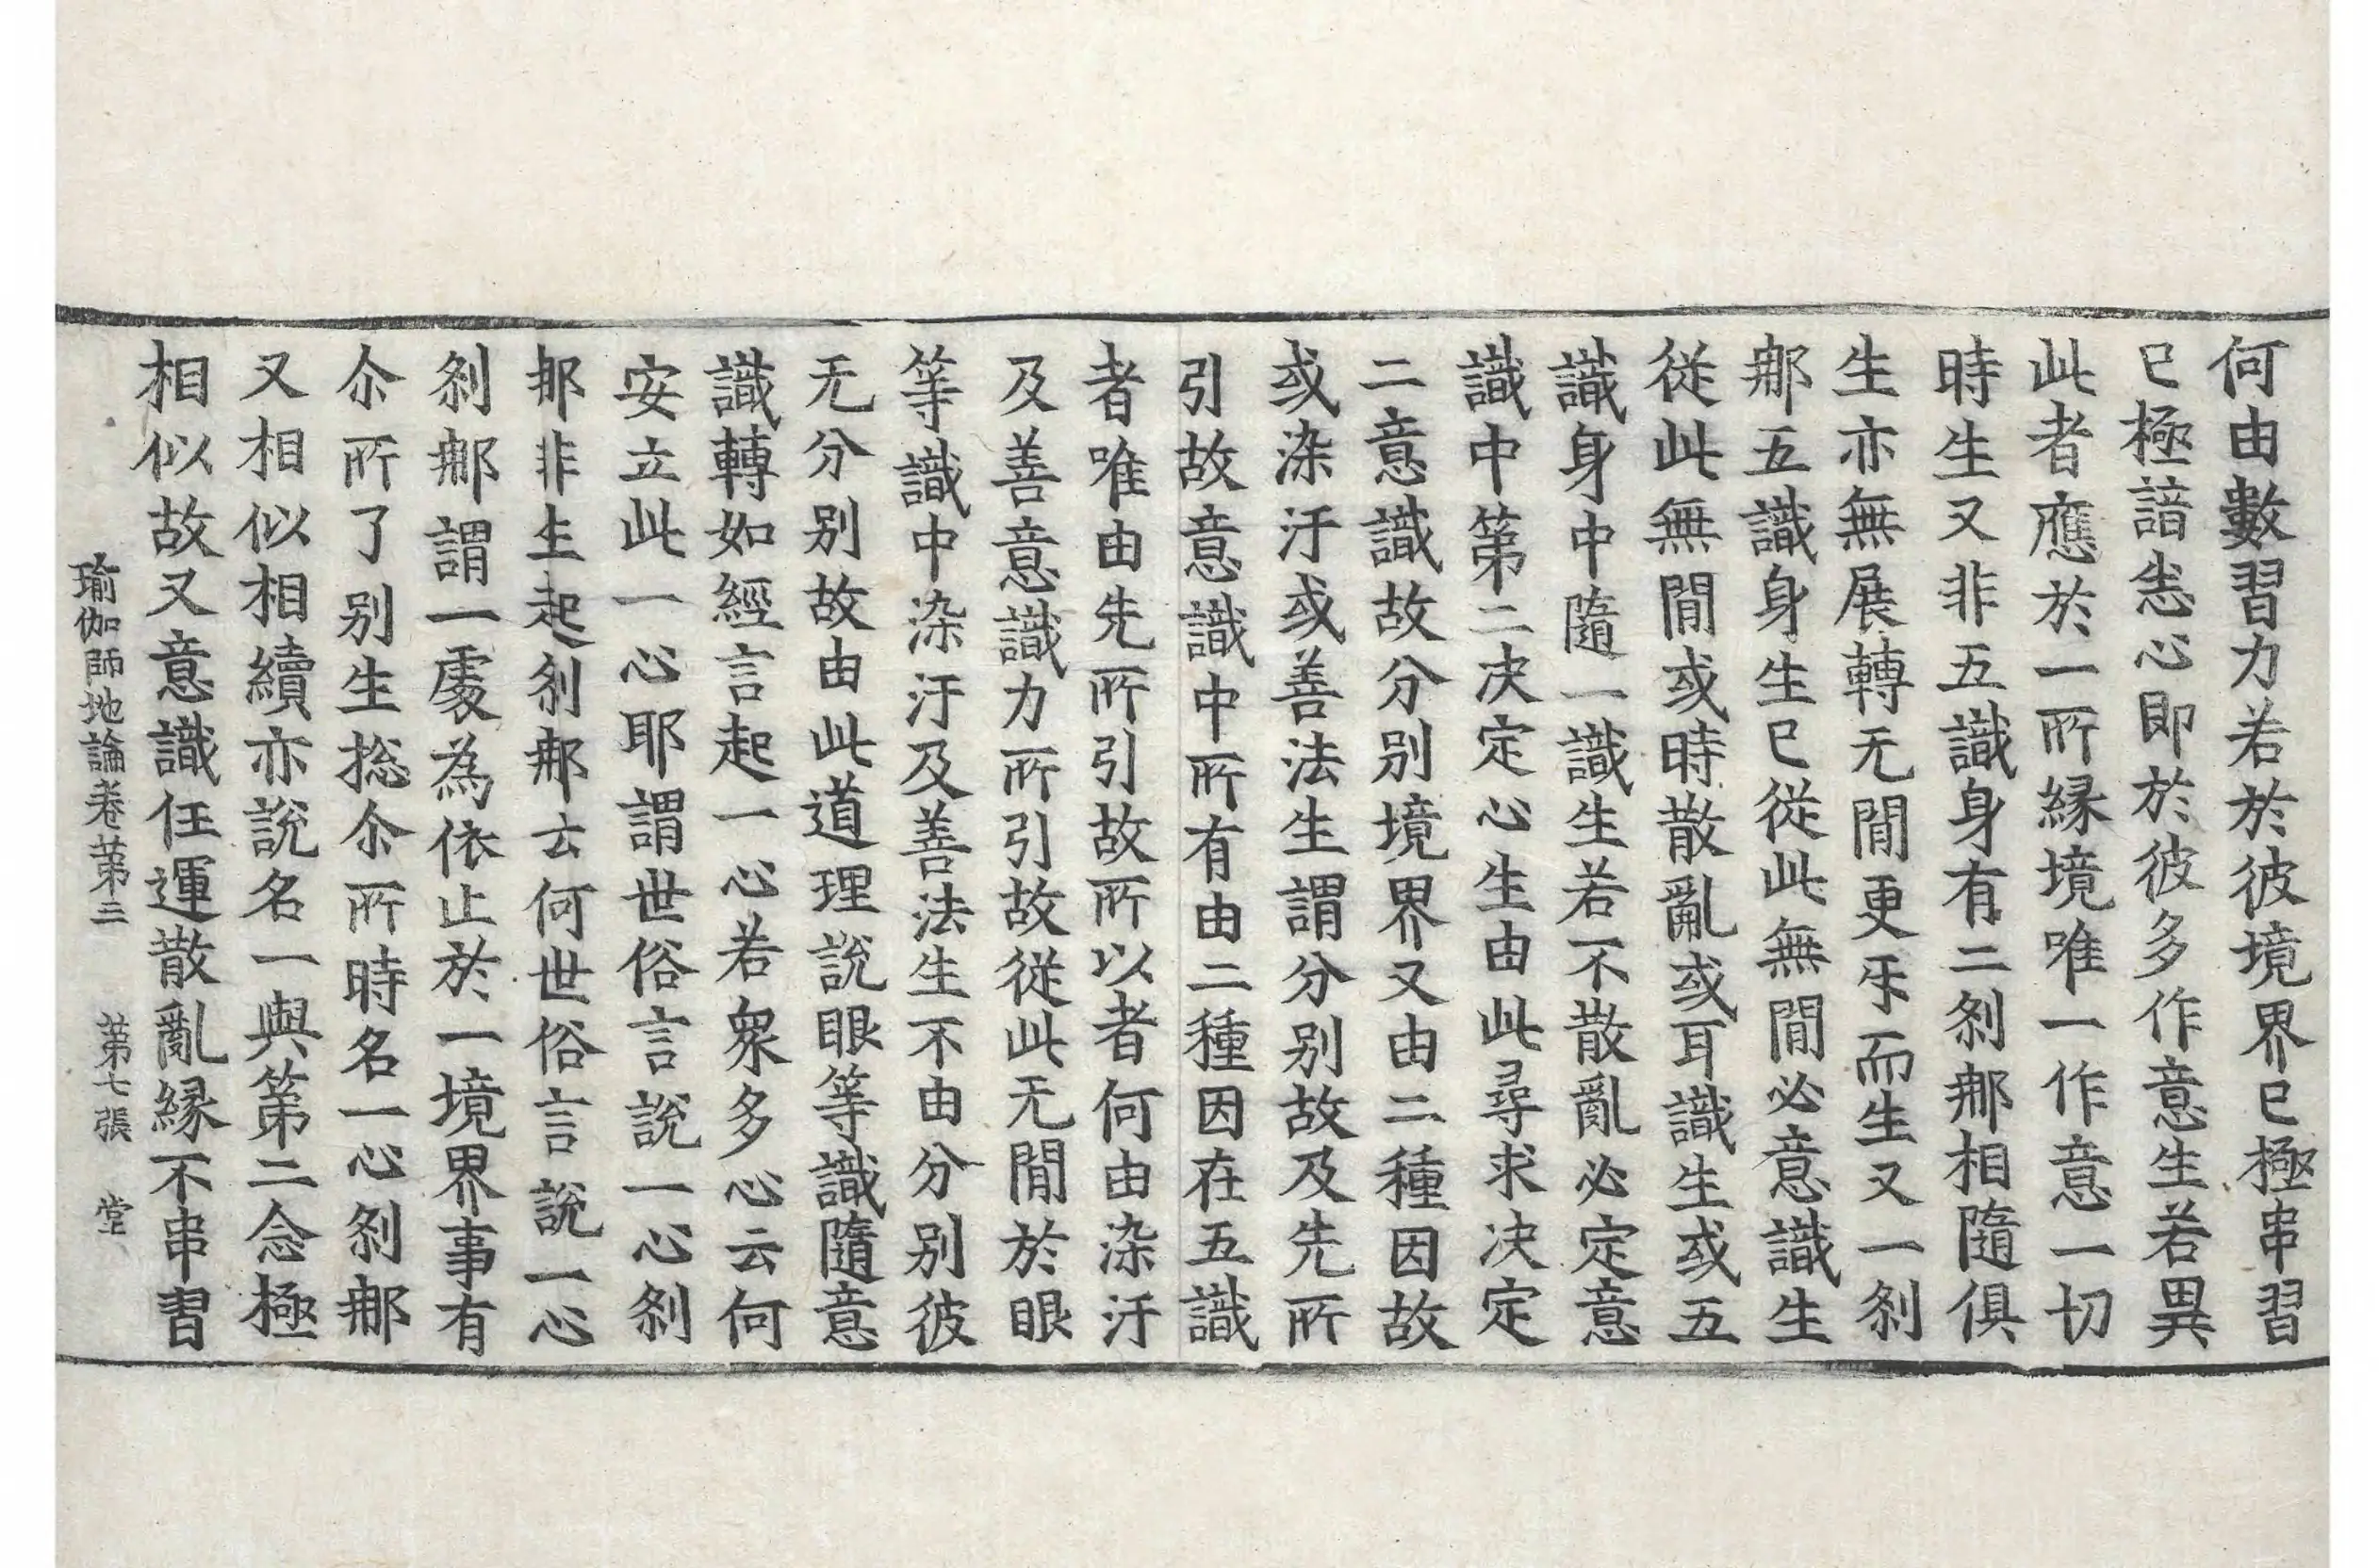 何由數習力若於彼境界已極串習
已極諳悉心即於彼多作意生若異
此者應於一所縁境唯一作意一切
時生又非五識身有二刹那相隨俱
生亦無展轉无間更𤓰而生又一刹
那五識身生已從此無間必意識生
從此無間或時散亂或耳識生或五
識身中隨一識生若不散亂必定意
識中第二决定心生由此尋求决定
二意識故分別境界又由二種因故
或染汙或善法生謂分別故及先所
引故意識中所有由二種因在五識
者唯由先所引故所以者何由染汙
及善意識力所引故從此无間於眼
等識中染汙及善法生不由分別彼
无分別故由此道理說眼等識隨意
識轉如經言起一心若衆多心云何
安立此一心耶謂世俗言說一心刹
那非生起刹那云何世俗言說一心
刹那謂一處為依止於一境界事有
尒所了別生捴尒所時名一心刹那
又相似相續亦說名一與第二念極
相似故又意識任運散亂縁不串習
瑜伽師地論卷第三 第七張 堂